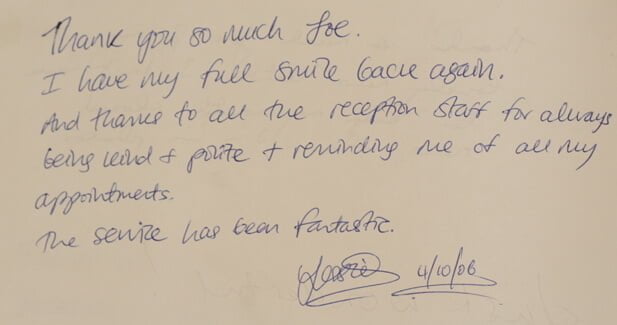 Thank you so much Joe.
I have my full smile back again.
And thanks to all the reception staff for always
being kind + polite + reminding me of all my
appointments.
The service has been fantastic.
4/10/06